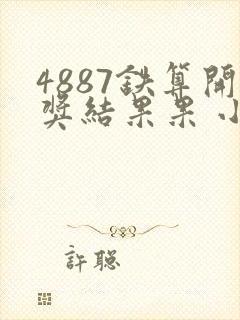 4887鉄算開
奖結果果小
許聪